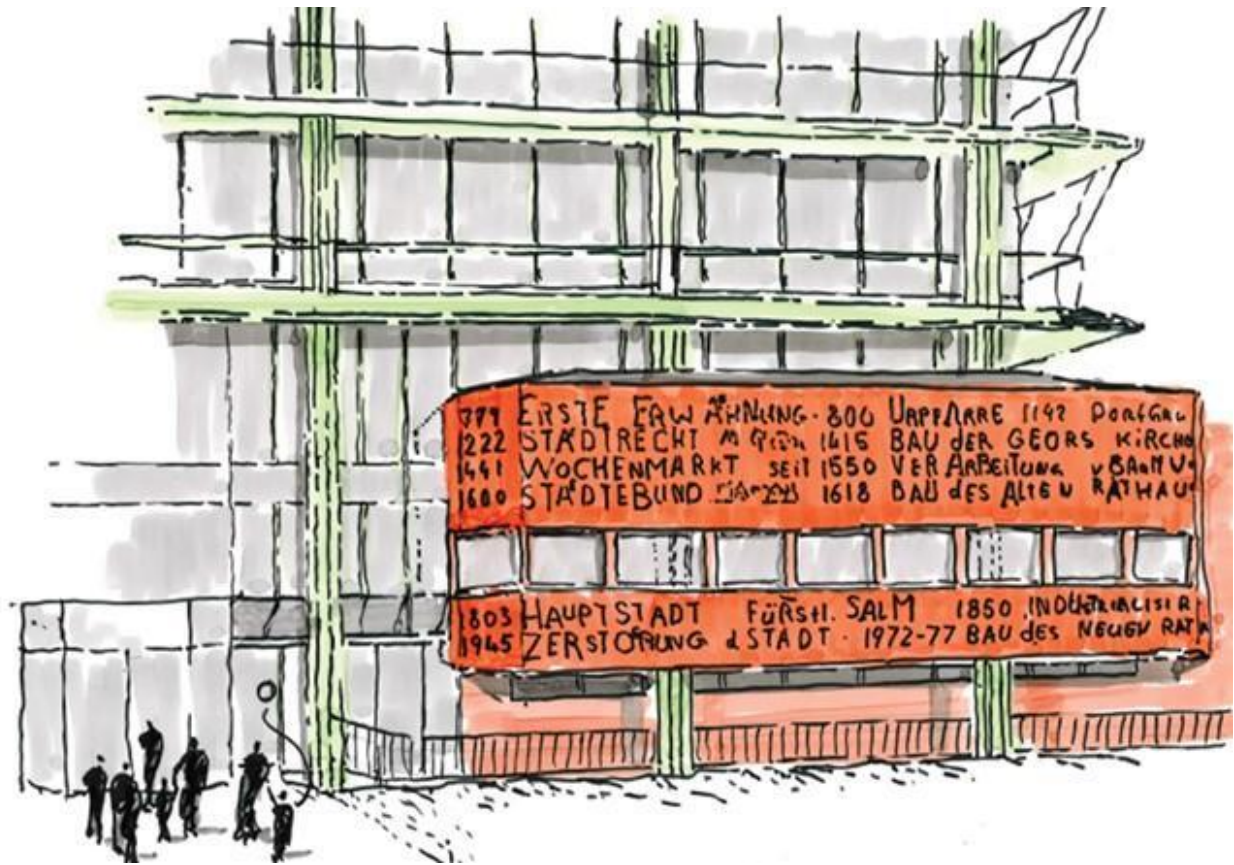 779 ERSTE ERWÄHNUNG · 800 URPFARRE 1142 DORFGRU
1222 STADTRECHT 1415 BAU dER GEORS KIRCHE
1441 WOCHENMARKT SEIT 1550 VERARBEITUNG v BAUMWO
1600 STÄDTEBUND 1618 BAU dES ALTEN RATHAU
1803 HAUPTSTADT FÜRSTL. SALM 1850 INDUSTRIALISIER
1945 ZERSTÖRUNG d STADT · 1972-77 BAU dES NEUEN RATH